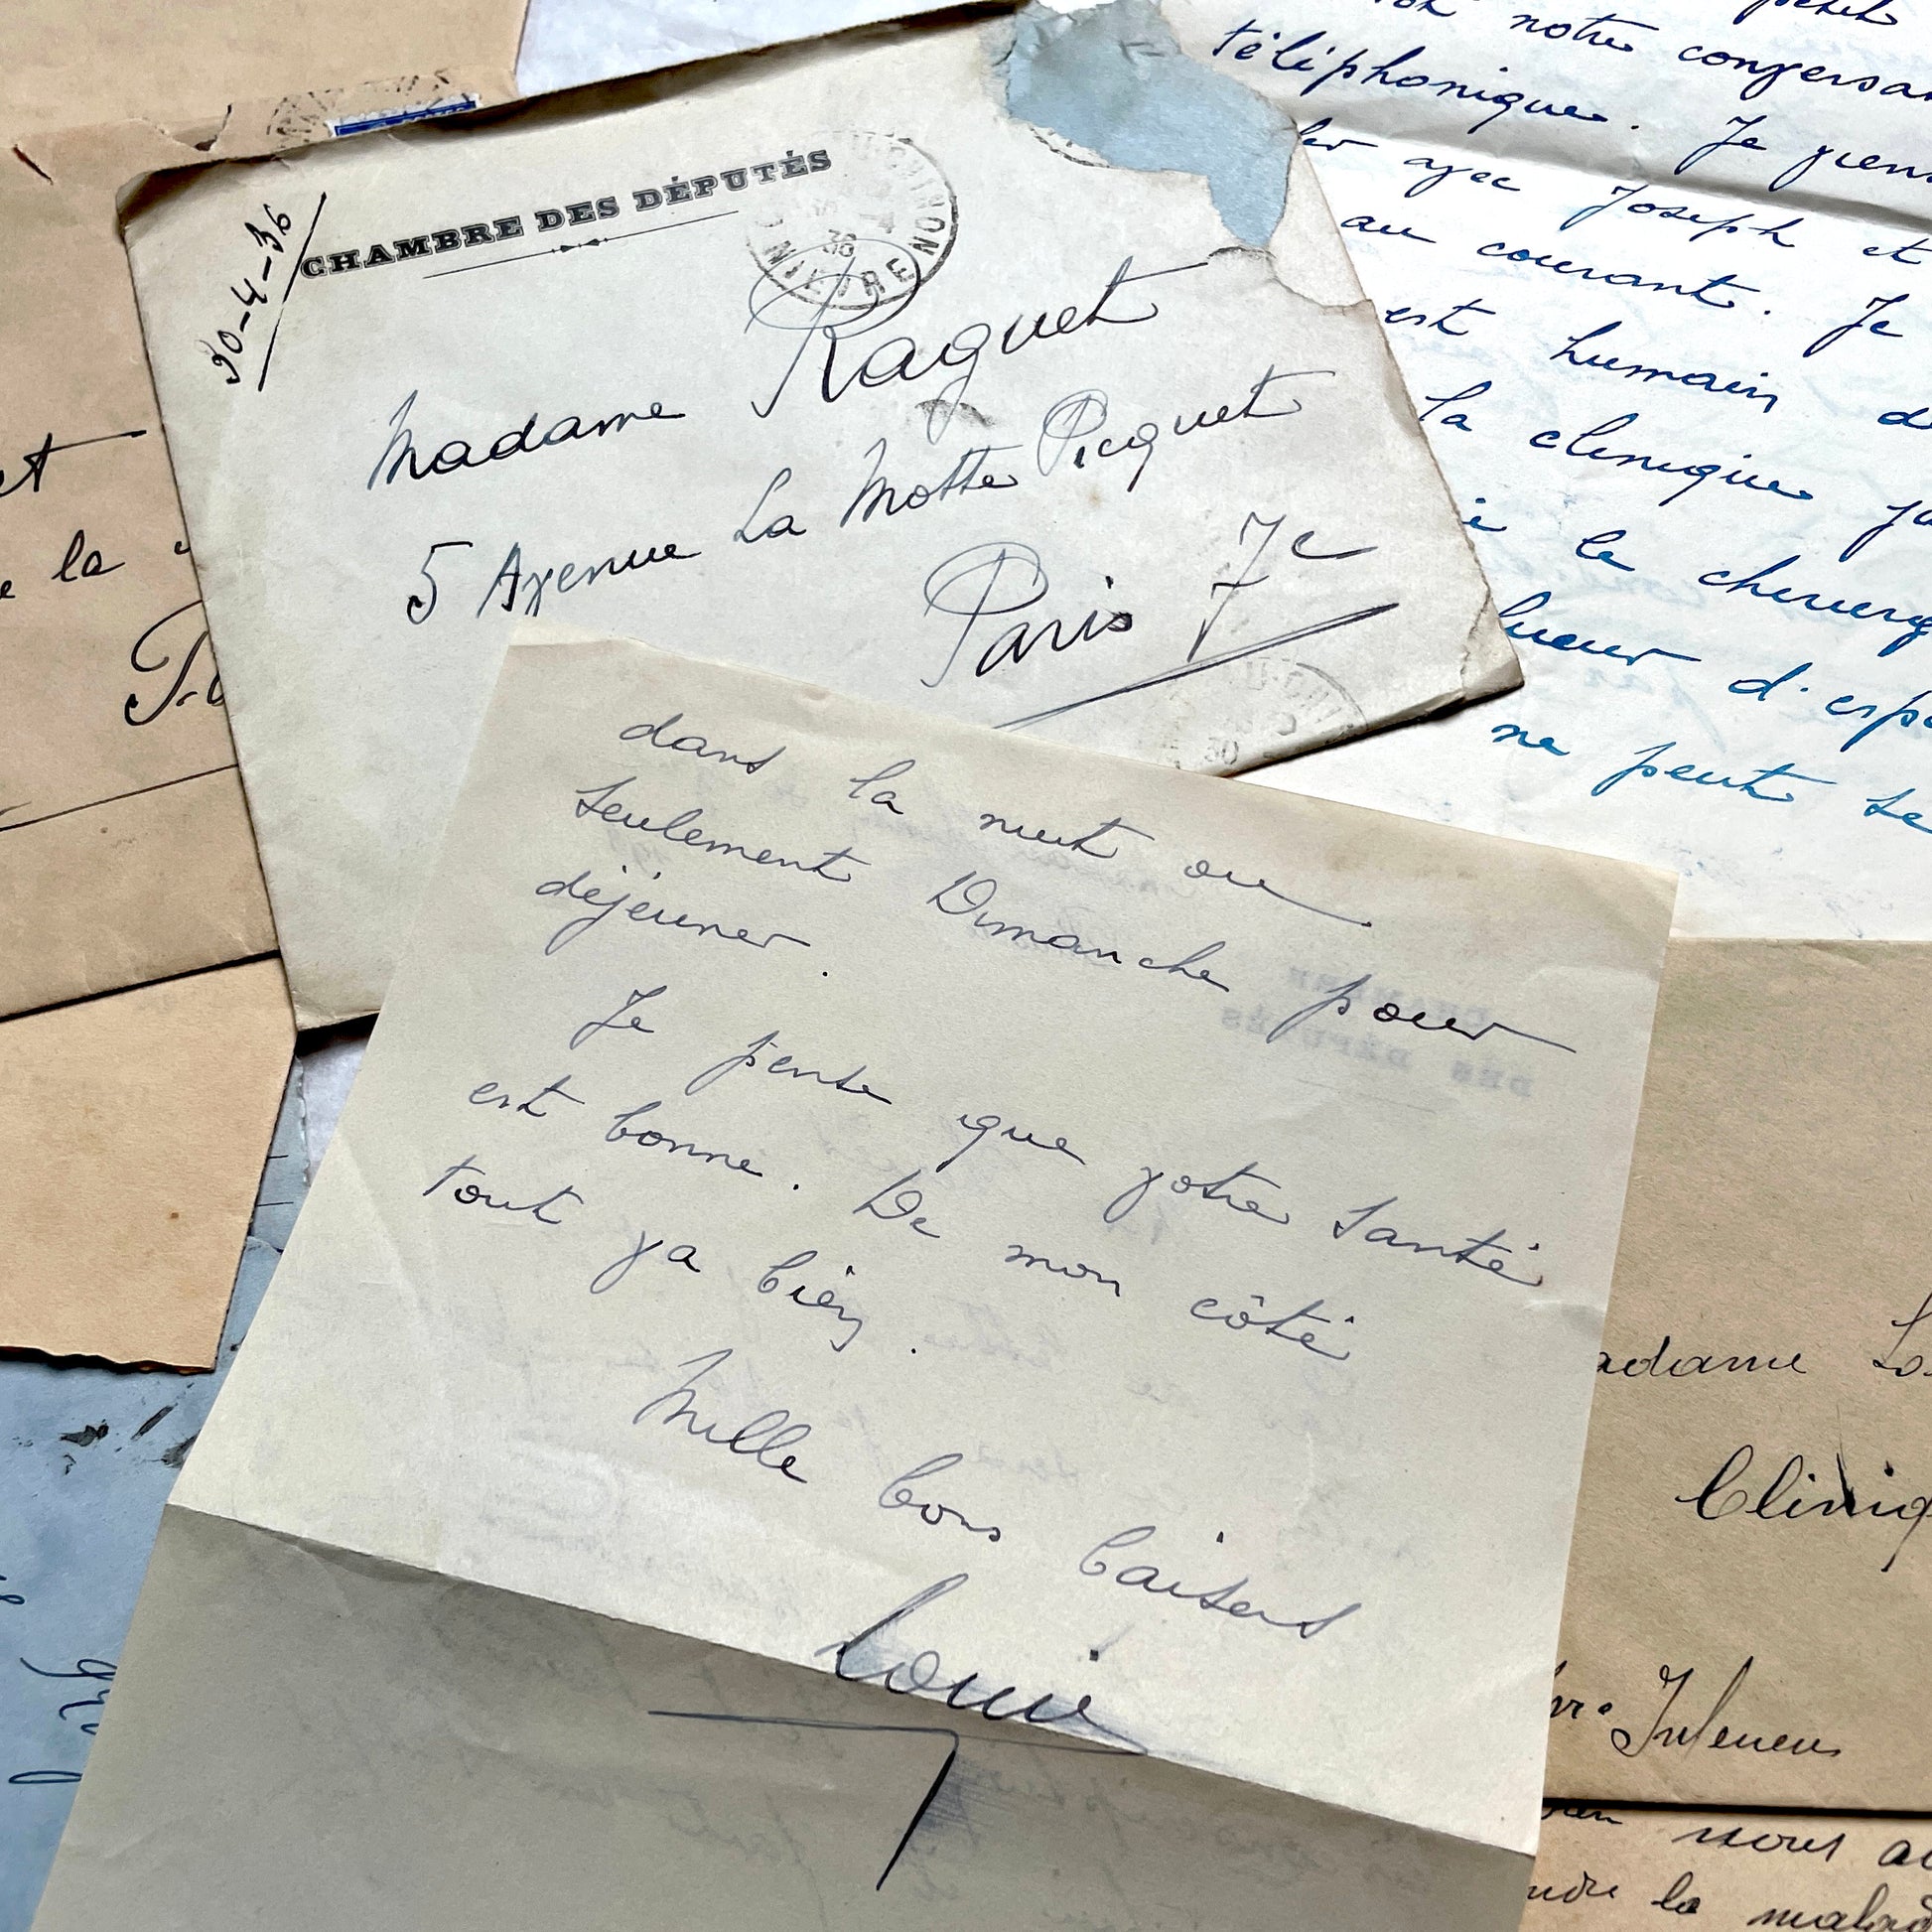 CHAMBRE DES DÉPUTÉS
30-4-36
NIÈVRE
Madame Raquet
5 Avenue La Motte Picquet
Paris 7e
dans la nuit ou
seulement Dimanche pour
déjeuner.
Je pense que votre santé
est bonne. De mon côté
tout va bien.
Mille bons baisers
Louis
petit
notre conversa
téléphonique. Je viens
avec Joseph et
au courant. Je
est humain d
la clinique
le chirurg
lueur d'espo
ne peut se
et
e la
CHAMBRE
DES DÉPUTÉS
adame
Cliniq
nous
la